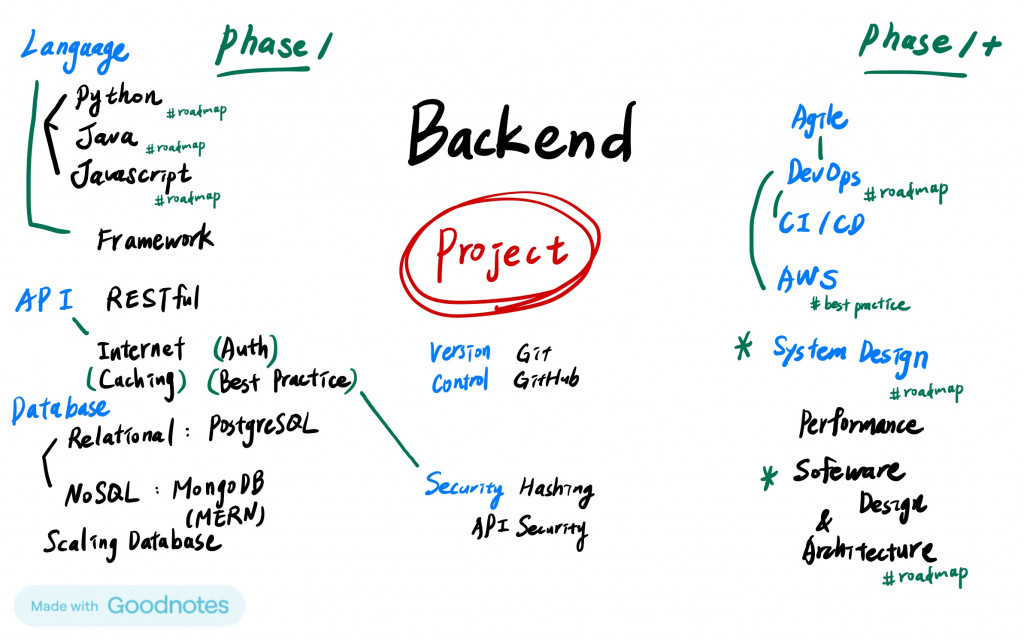 Language
Phase 1
Python
#roadmap
Java
#roadmap
Javascript
#roadmap
Framework
API RESTful
Internet (Auth)
(Caching) (Best Practice)
Database
Relational : PostgreSQL
NoSQL : MongoDB
(MERN)
Scaling Database
Backend
Project
Version Git
Control GitHub
Security Hashing
API Security
Phase 1+
Agile
DevOps
#roadmap
CI/CD
AWS
#best practice
* System Design
#roadmap
Performance
* Sofeware
Design
&
Architecture
#roadmap
Made with Goodnotes